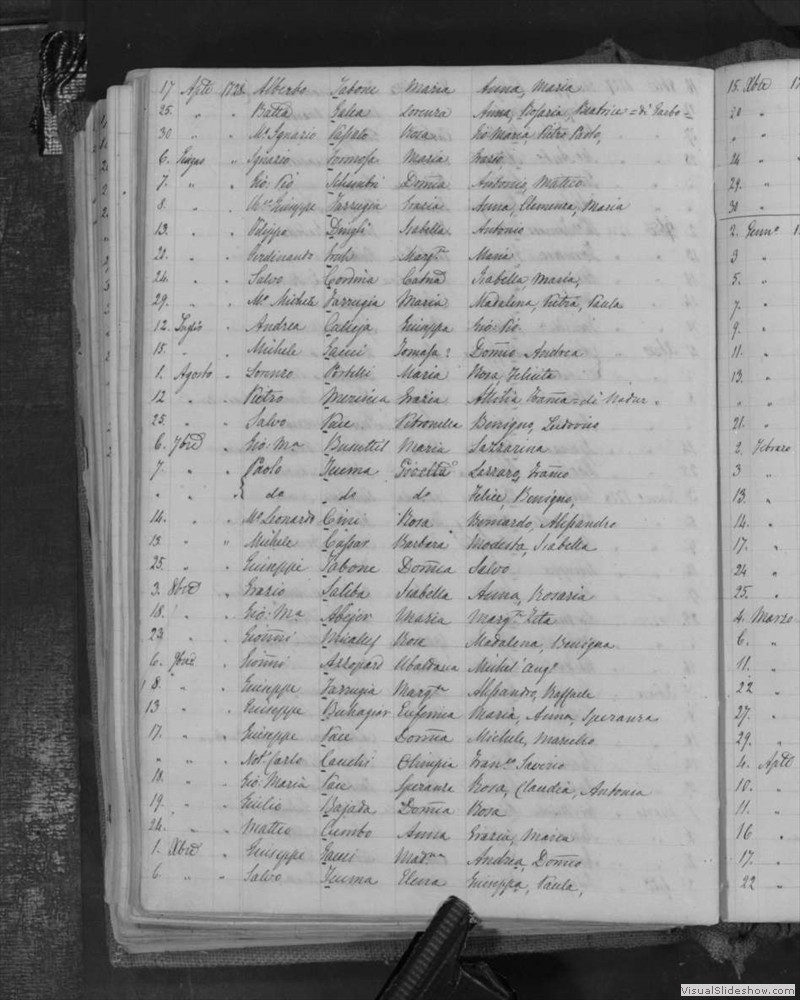 17 Aple 1728 Alberto Tabone Maria Anna, Maria
25. " " Batta Galea Lorenza Anna, Rosaria, Beatrice = di Garbo
30 " " Mo Ignazio Rosa Gio Maria, Pietro Paolo,
6. Giugno " Ignazio Tomasa Maria Grazio
7. " " Gio: Pio Schembri Domca Antonio, Matteo
8. " " Giuseppe Farrugia Grazia Anna, Clemenza, Maria
13. " " Filippo Dingli Isabella Antonio
21. " " Ferdinando Margta Maria
24. " " Salvo Cordina Catna Isabella, Maria,
29. " " Mo Michele Farrugia Maria Madalena, Pietra, Paula
12. Luglio " Andrea Calleja Giuseppa Gio: Pio
15. " " Michele Zauci Tomasa? Domco Andrea
1. Agosto " Lorenzo Portelli Maria Rosa, Felicita
12 " " Pietro Grazia di Nadur
25. " " Salvo Pace Petronella Benigno, Ludovico
6. 7bre " Gio: Ma Busuttil Maria Lazzarina
7. " " Paolo Lazzaro, Franco
" " " do do do Felice, Benigno,
14. " " Mo Leonardo Cini Rosa Bernardo, Alessandro
13. " " Michele Cassar Barbara Modesta, Isabella
25. " " Giuseppe Tabone Domca Salvo
3. 8bre " Grazio Saliba Isabella Anna, Rosaria
18. " " Gio: Ma Abejer Maria Margta Zita
23 " " Gionni Micallef Rosa Madalena, Benigna
6. 9bre " Gionni Azzopard Ubaldesca Michel' Ango
8. " " Giuseppe Farrugia Margta Alessandro, Raffaele
13 " " Giuseppe Buhagiar Eufemia Maria, Anna, Speranza
17. " " Giuseppe Pace Domca Michele, Marcello
" " " Notr Carlo Cauchi Olimpia Franco Saverio
18. " " Gio: Maria Pace Speranza Rosa, Claudia, Antonia
19. " " Giulio Bajada Domca Rosa
24. " " Matteo Cumbo Anna Grazia, Maria
1. Xbre " Giuseppe Zauci Madna Andrea, Domco
6. " " Salvo Elena Giuseppa, Paula,
15. Xbre 17
20 "
" "
24 "
29. "
30 "
2. Genno 1
3 "
5. "
7. "
9. "
11. "
13. "
" "
21. "
2. Febraro
3 "
13. "
14. "
17. "
24 "
25. "
4. Marzo
6. "
11. "
22 "
27. "
29. "
4. Aple
10. "
11. "
16 "
17. "
22 "
VisualSlideshow.com